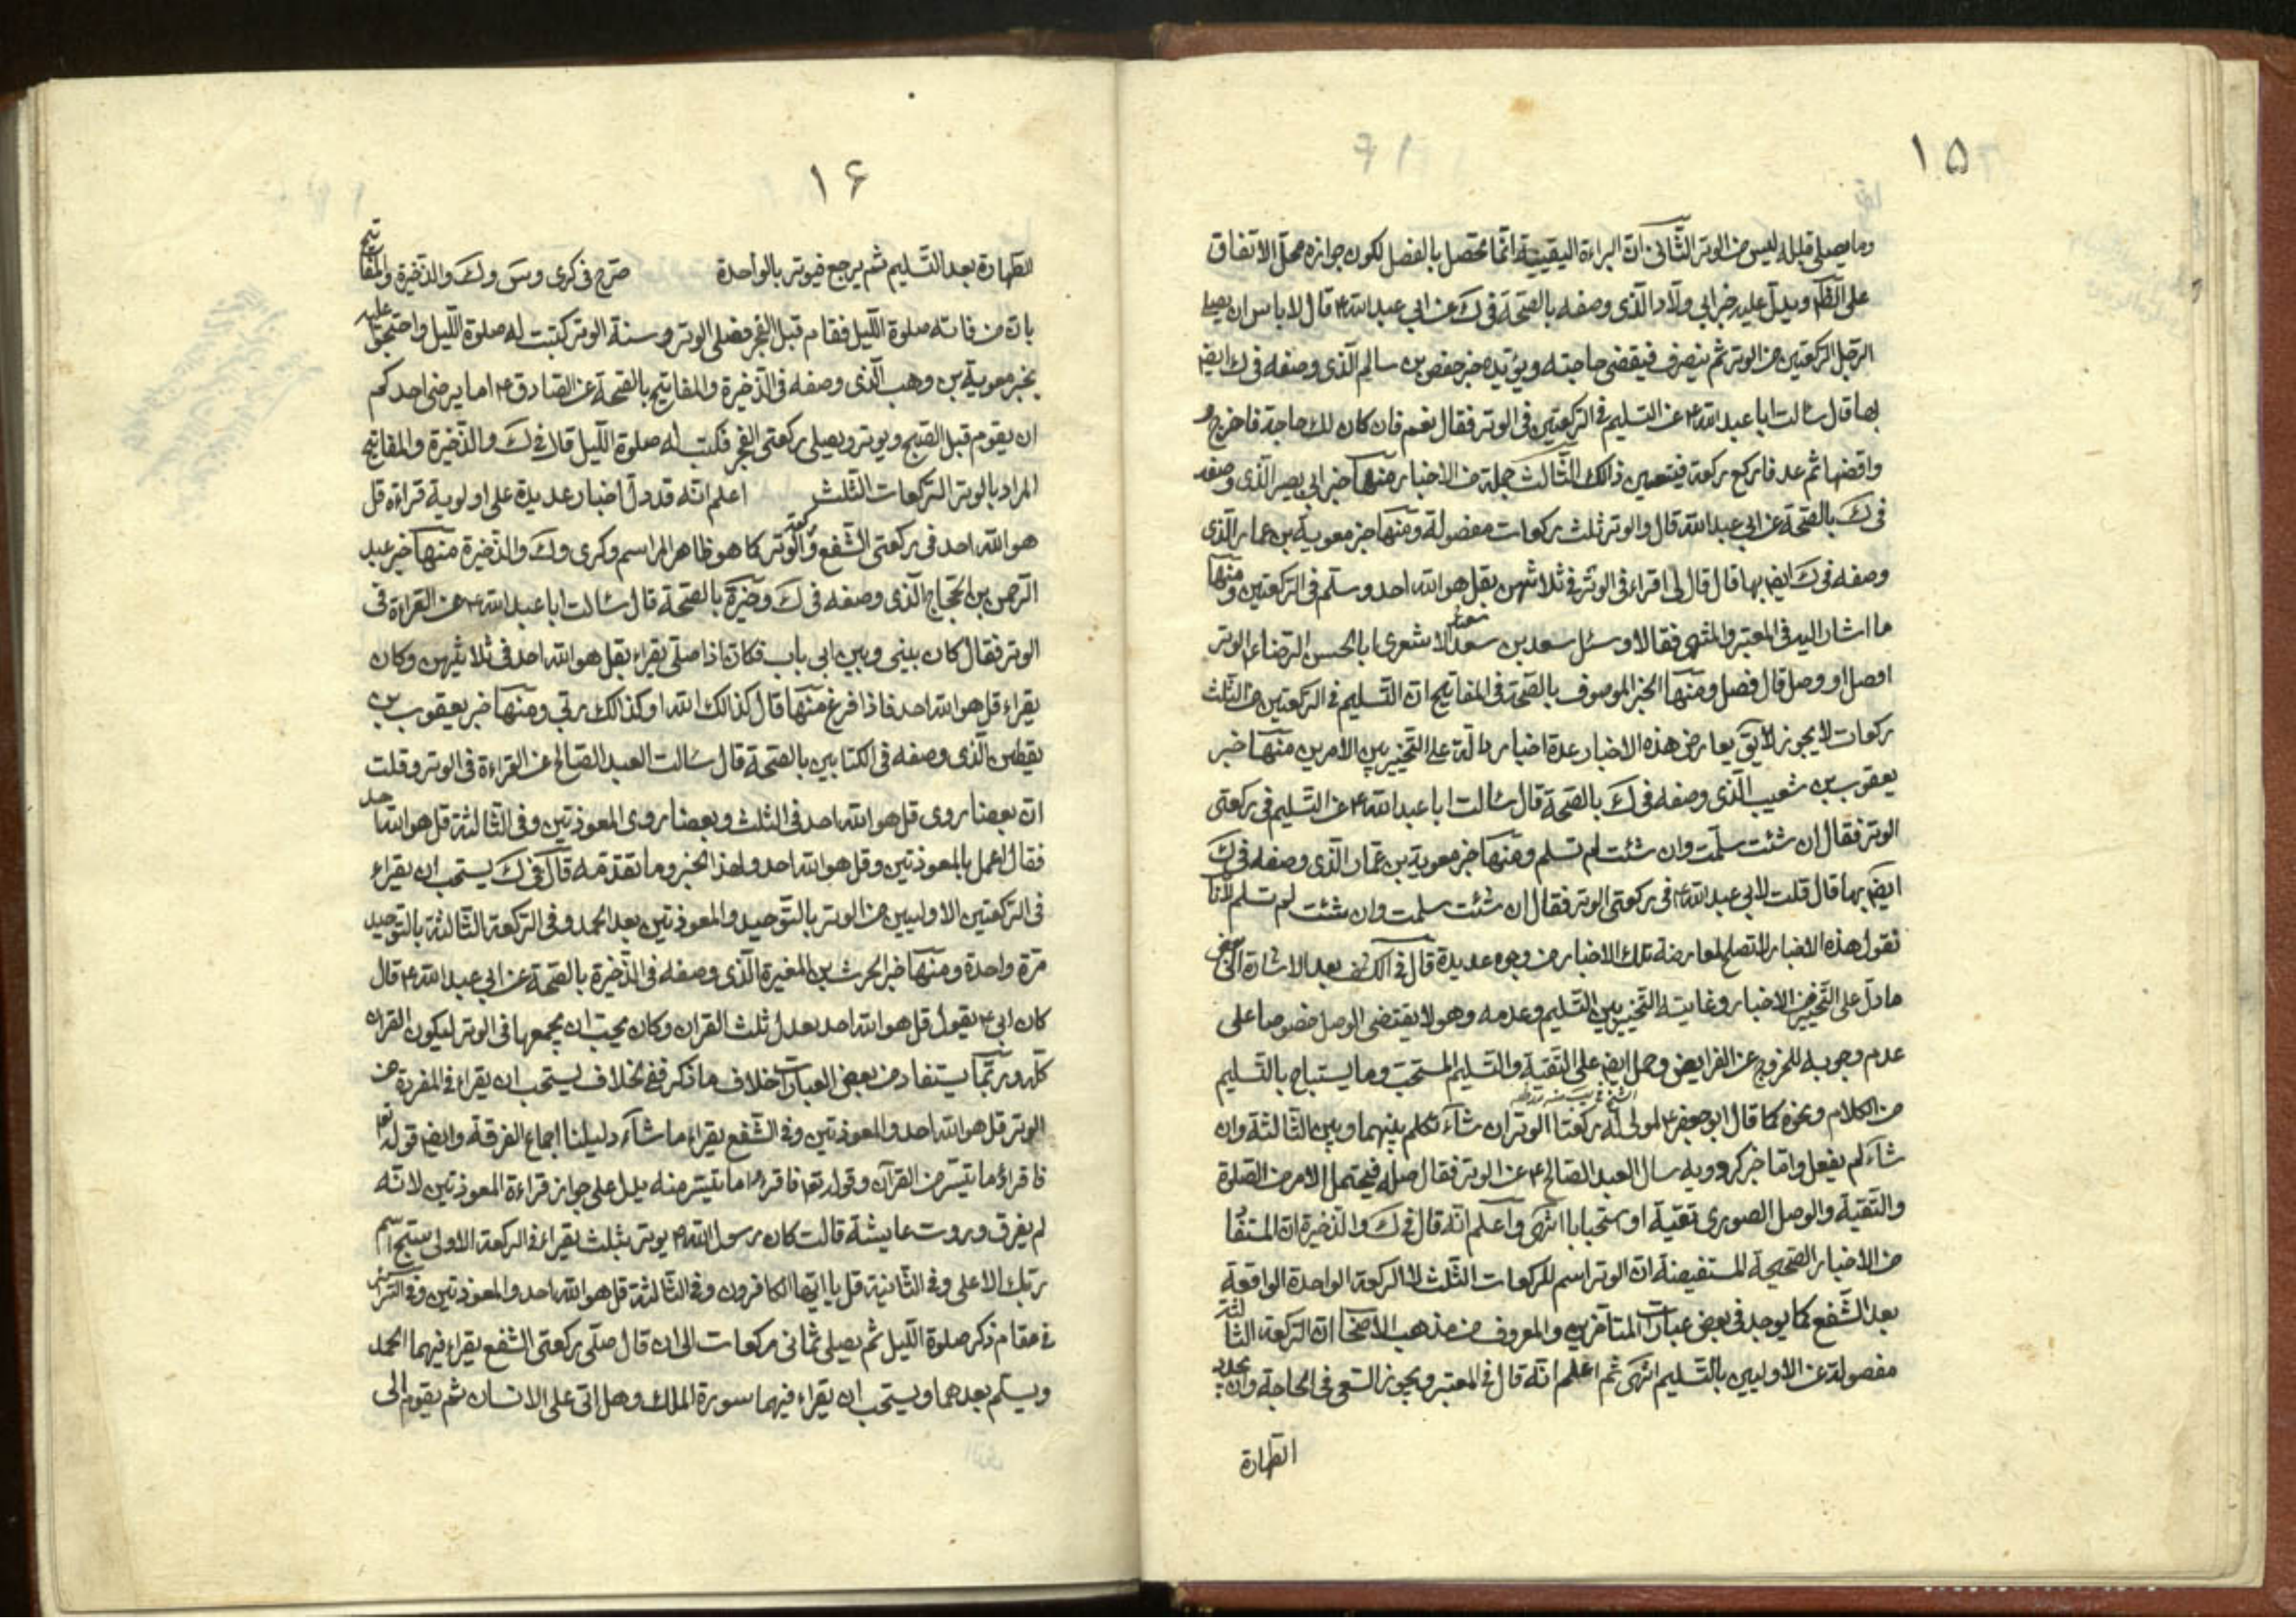 ١٥
وما يصلى قبله ليس من الوتر الثانى ان البراءة اليقينية انما تحصل بالفصل لكون جوازه محل الاتفاق
على الظاهر ويدل عليه خبر ابي ولاد الذى وصفه بالصحة فى ك عن ابي عبد الله ع قال لا باس ان يصلى
الرجل الركعتين من الوتر ثم ينصرف فيقضى حاجته ويؤيده خبر حفص بن سالم الذى وصفه فى ك ايض
بها قال سالت ابا عبد الله ع عن التسليم فى الركعتين فى الوتر فقال نعم فان كان لك حاجة فاخرج
واقضها ثم عد فاركع ركعة فيتعين ذلك الثالث جملة من الاخبار منها خبر ابي بصير الذى وصفه
فى ك بالصحة عن ابي عبد الله قال والوتر ثلث ركعات مفصولة ومنها خبر معوية بن عمار الذى
وصفه فى ك ايض بها قال قال لى اقراء فى الوتر فى ثلاثتهن بقل هو الله احد وسلم فى الركعتين ومنها
ما اشار اليه فى المعتبر والمنتهى فقالا وسئل سعد بن سعد الاشعرى ابا الحسن الرضا ع الوتر
افصل او وصل قال فصل ومنها الخبر الموصوف بالصحة فى المفاتيح ان التسليم فى الركعتين من الثلث
ركعات لا يجوز لا يق يعارض هذه الاخبار عدة اخبار دالة على التخيير بين الامرين منها خبر
يعقوب بن شعيب الذى وصفه فى ك بالصحة قال سالت ابا عبد الله ع عن التسليم فى ركعتى
الوتر فقال ان شئت سلمت وان شئت لم تسلم ومنها خبر معوية بن عمار الذى وصفه فى ك
ايض بها قال قلت لابي عبد الله ع فى ركعتى الوتر فقال ان شئت سلمت وان شئت لم تسلم لانا
نقول هذه الاخبار لا تصلح لمعارضة تلك الاخبار من وجوه عديدة قال فى الكشف بعد الاشارة الى بعض
ما دل على التخيير من الاخبار وغايته التخيير بين التسليم وعدمه وهو لا يقتضى الوصل خصوصا على
عدم وجوبه للخروج عن الفرايض وحمل ايض على التقية والتسليم المستحب وما يستباح بالتسليم
من الكلام ونحوه كما قال ابو جعفر ع لمولى له ركعتا الوتر ان شاء تكلم بينهما وبين الثالثة وان
شاء لم يفعل واما خبر كردويه سال العبد الصالح ع عن الوتر فقال صله فيحتمل الامر من الصلوة
والتقية والوصل الصورى تقية او ستحبابا انتهى واعلم انه قال فى ك والذخيرة ان المستفاد
من الاخبار الصحيحة المستفيضة ان الوتر اسم للركعات الثلث لا الركعة الواحدة الواقعة
بعد الشفع كما يوجد فى بعض عبارات المتاخرين والمعروف من مذهب الاصحاب ان الركعة الثالثة
مفصولة عن الاوليين بالتسليم انتهى ثم اعلم انه قال فى المعتبر ويجوز السعى فى الحاجة وان يجدد
الطهارة
١۶
الطهارة بعد التسليم ثم يرجع فيوتر بالواحدة صرح فى كرى وس وك والذخيرة والمفاتيح
بان من فاتته صلوة الليل فقام قبل الفجر فصلى الوتر وسنة الوتر كتبت له صلوة الليل واحتج عليه
بخبر معوية بن وهب الذى وصفه فى الذخيرة والمفاتيح بالصحة عن الصادق ع اما يرضى احدكم
ان يقوم قبل الصبح ويوتر ويصلى ركعتى الفجر فتكتب له صلوة الليل قال فى ك والذخيرة والمفاتيح
المراد بالوتر الركعات الثلث اعلم انه قد دل اخبار عديدة على اولوية قراءة قل
هو الله احد فى ركعتى الشفع والوتر كما هو ظاهر المراسم وكرى وك والذخيرة منها خبر عبد
الرحمن بن الحجاج الذى وصفه فى ك وخيرة بالصحة قال سئالت ابا عبد الله ع عن القراءة فى
الوتر فقال كان بينى وبين ابى باب فكان اذا صلى يقراء بقل هو الله احد فى ثلاثتهن وكان
يقراء قل هو الله احد فاذا فرغ منها قال كذالك الله او كذالك ربي ومنها خبر يعقوب بن
يقطين الذى وصفه فى الكتابين بالصحة قال سالت العبد الصالح عن القراءة فى الوتر وقلت
ان بعضا روى قل هو الله احد فى الثلث وبعضا روى المعوذتين وفى الثالثة قل هو الله احد
فقال اعمل بالمعوذتين وقل هو الله احد ولهذا الخبر وما تقدمه قال فى ك يستحب ان يقراء
فى الركعتين الاوليين من الوتر بالتوحيد والمعوذتين بعد الحمد وفى الركعة الثالثة بالتوحيد
مرة واحدة ومنها خبر الحرث بن المغيرة الذى وصفه فى الذخيرة بالصحة عن ابي عبد الله ع قال
كان ابي ع يقول قل هو الله احد يعدل ثلث القران وكان يحب ان يجمعها فى الوتر ليكون القران
كله وربما يستفاد من بعض العبارات خلاف ما ذكر ففى الخلاف يستحب ان يقراء فى المفردة من
الوتر قل هو الله احد والمعوذتين وفى الشفع يقراء ما شاء دليلنا اجماع الفرقة وايض قوله تعا
فاقرءوا ما تيسر من القرآن وقوله تعا فاقرءوا ما تيسر منه يدل على جواز قراءة المعوذتين لانه
لم يفرق وروت عايشة قالت كان رسول الله ص يوتر بثلث يقراء فى الركعة الاولى سبح اسم
ربك الاعلى وفى الثانية قل يا ايها الكافرون وفى الثالثة قل هو الله احد والمعوذتين وفى السرائر
فى مقام ذكر صلوة الليل ثم يصلى ثمانى ركعات الى ان قال صلى ركعتى الشفع يقراء فيهما الحمد
ويسلم بعدهما ويستحب ان يقراء فيهما سورة الملك وهل اتى على الانسان ثم يقوم الى